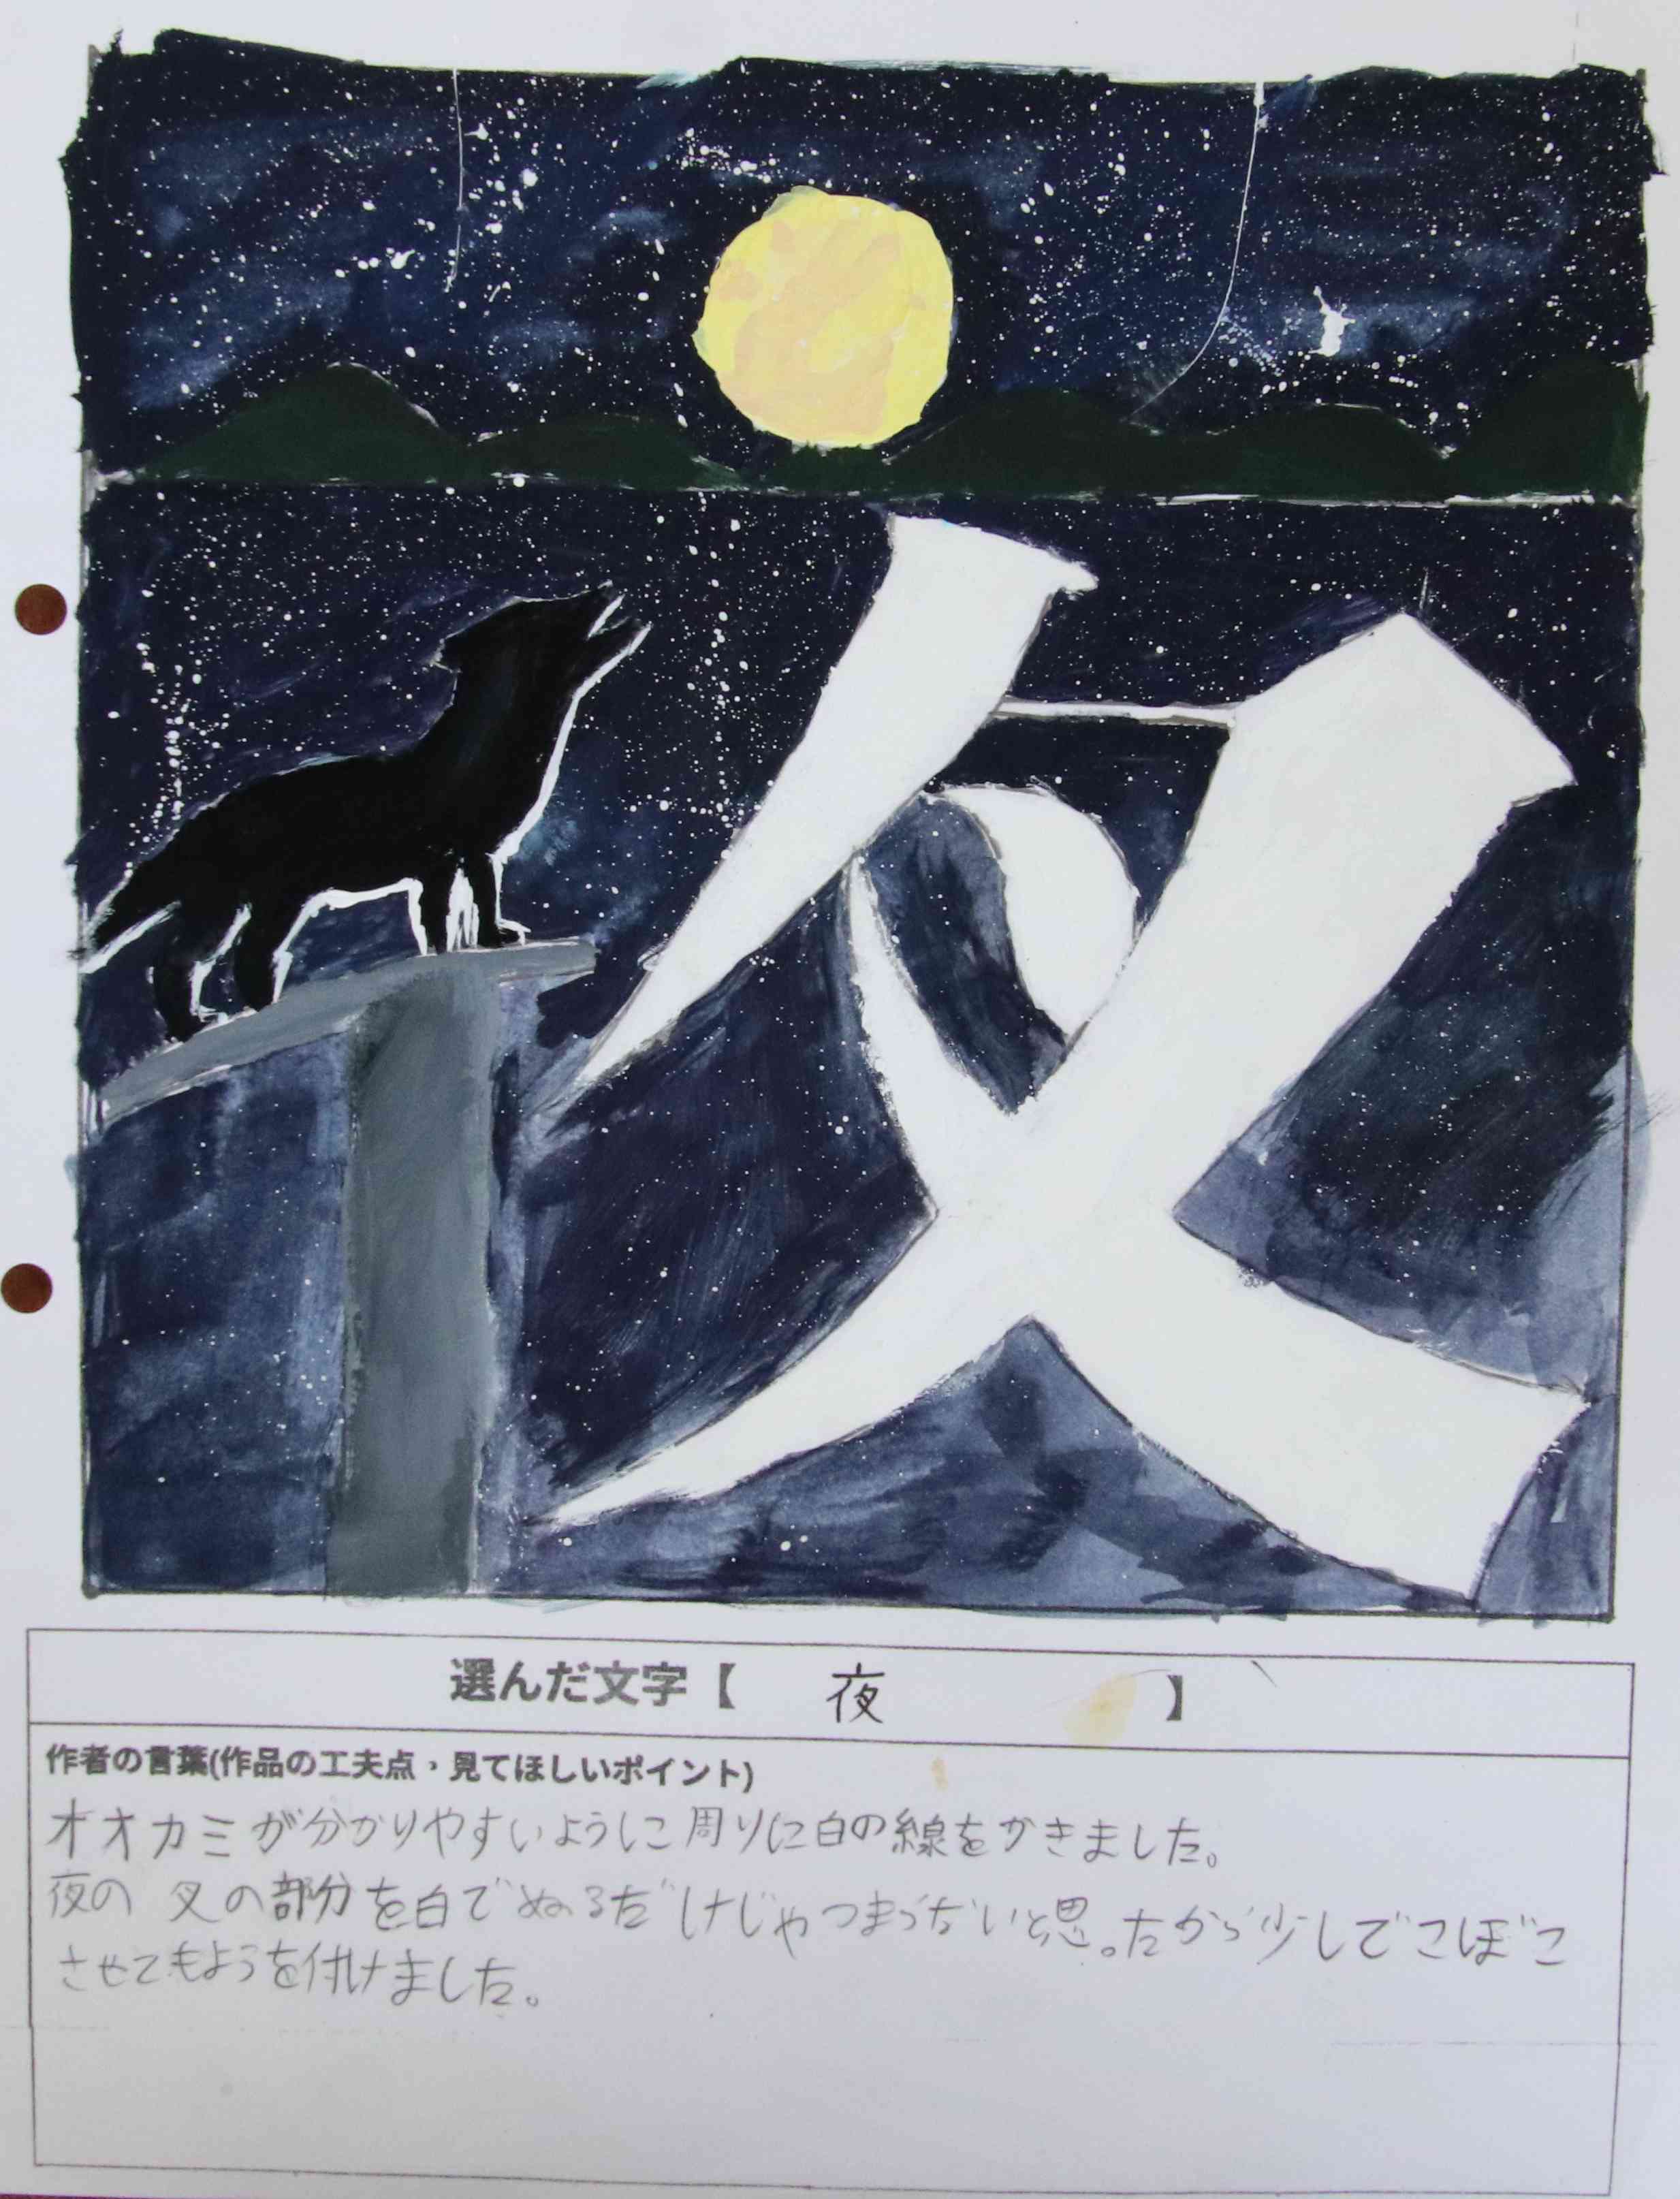 選んだ文字【 夜 】
作者の言葉(作品の工夫点・見てほしいポイント)
オオカミが分かりやすいように周りに白の線をかきました。
夜の 夂の部分を白でぬるだけじゃつまらないと思ったから少しでこぼこ
させてもようを付けました。